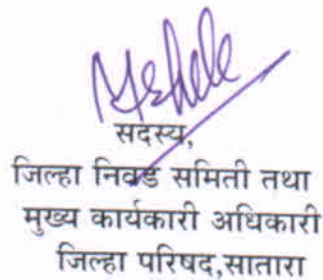 सदस्य,
जिल्हा निवड समिती तथा
मुख्य कार्यकारी अधिकारी
जिल्हा परिषद,सातारा